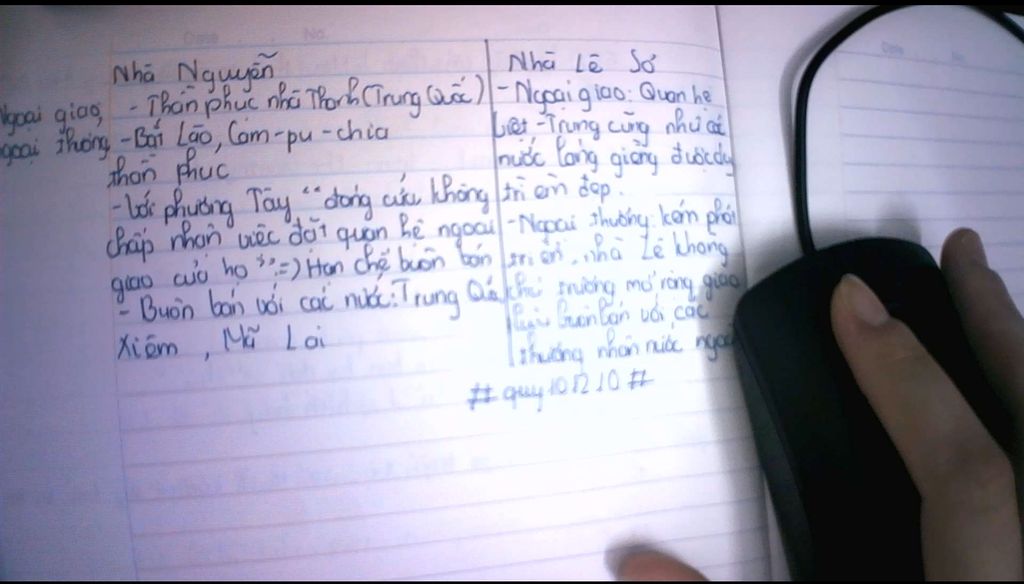 Date No.
Nhà Nguyễn
Ngoại giao, - Thần phục nhà Thanh (Trung Quốc)
ngoại thương - Bắt Lào, Cam-pu-chia
thần phục
- Với phương Tây "đóng cửa không
chấp nhận việc đặt quan hệ ngoại
giao của họ" => Hạn chế buôn bán
- Buôn bán với các nước: Trung Quốc
Xiêm, Mã Lai
Nhà Lê Sơ
- Ngoại giao: Quan hệ
Việt - Trung cũng như các
nước láng giềng được duy
trì êm đẹp.
- Ngoại thương: kém phát
triển, nhà Lê không
chủ trương mở rộng giao
lưu buôn bán với các
thương nhân nước ngoài
# quy101210 #
Date